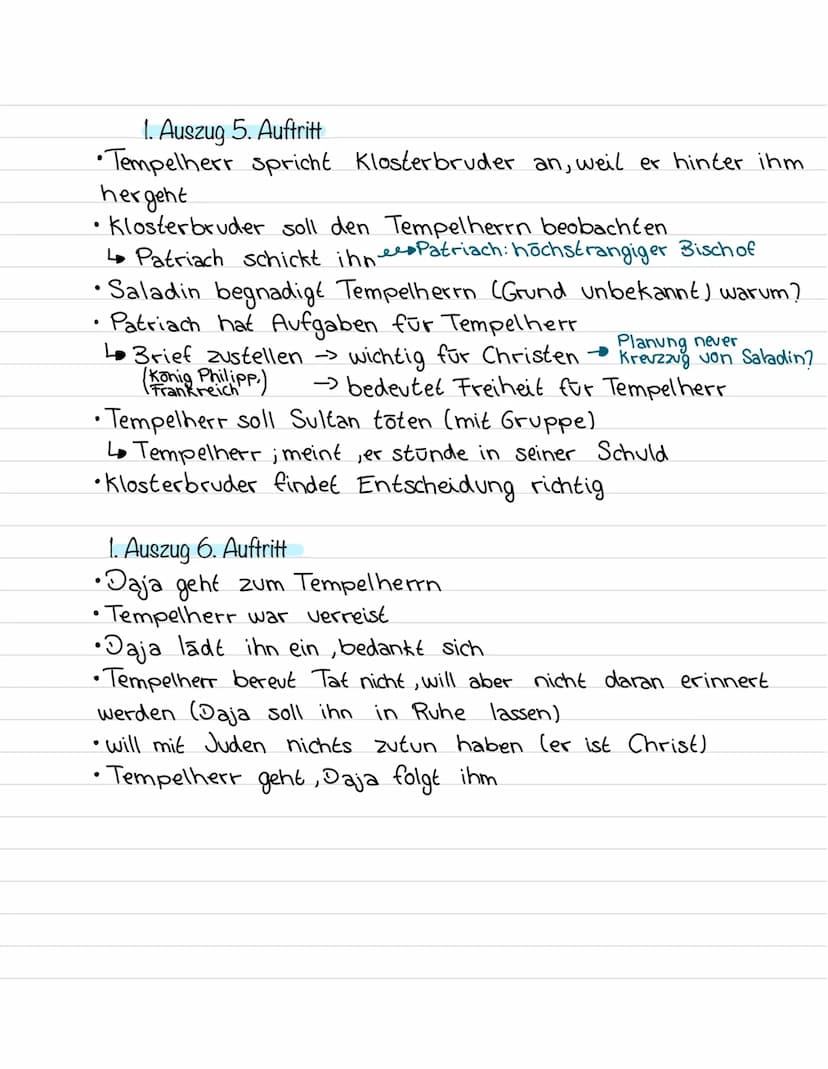 1. Auszug 5. Auftritt
• Tempelherr spricht Klosterbruder an, weil er hinter ihm
hergeht
• Klosterbruder soll den Tempelherrn beobachten
↳ Patriach schickt ihn → Patriach: höchstrangiger Bischof
• Saladin begnadigt Tempelherrn (Grund unbekannt) warum?
• Patriach hat Aufgaben für Tempelherr
↳ Brief zustellen → wichtig für Christen → Planung neuer Kreuzzug von Saladin?
(König Philipp, Frankreich) → bedeutet Freiheit für Tempelherr
• Tempelherr soll Sultan töten (mit Gruppe)
↳ Tempelherr ; meint , er stünde in seiner Schuld
• Klosterbruder findet Entscheidung richtig
1. Auszug 6. Auftritt
• Daja geht zum Tempelherrn
• Tempelherr war verreist
• Daja lädt ihn ein , bedankt sich
• Tempelherr bereut Tat nicht , will aber nicht daran erinnert
werden (Daja soll ihn in Ruhe lassen)
• will mit Juden nichts zutun haben (er ist Christ)
• Tempelherr geht , Daja folgt ihm